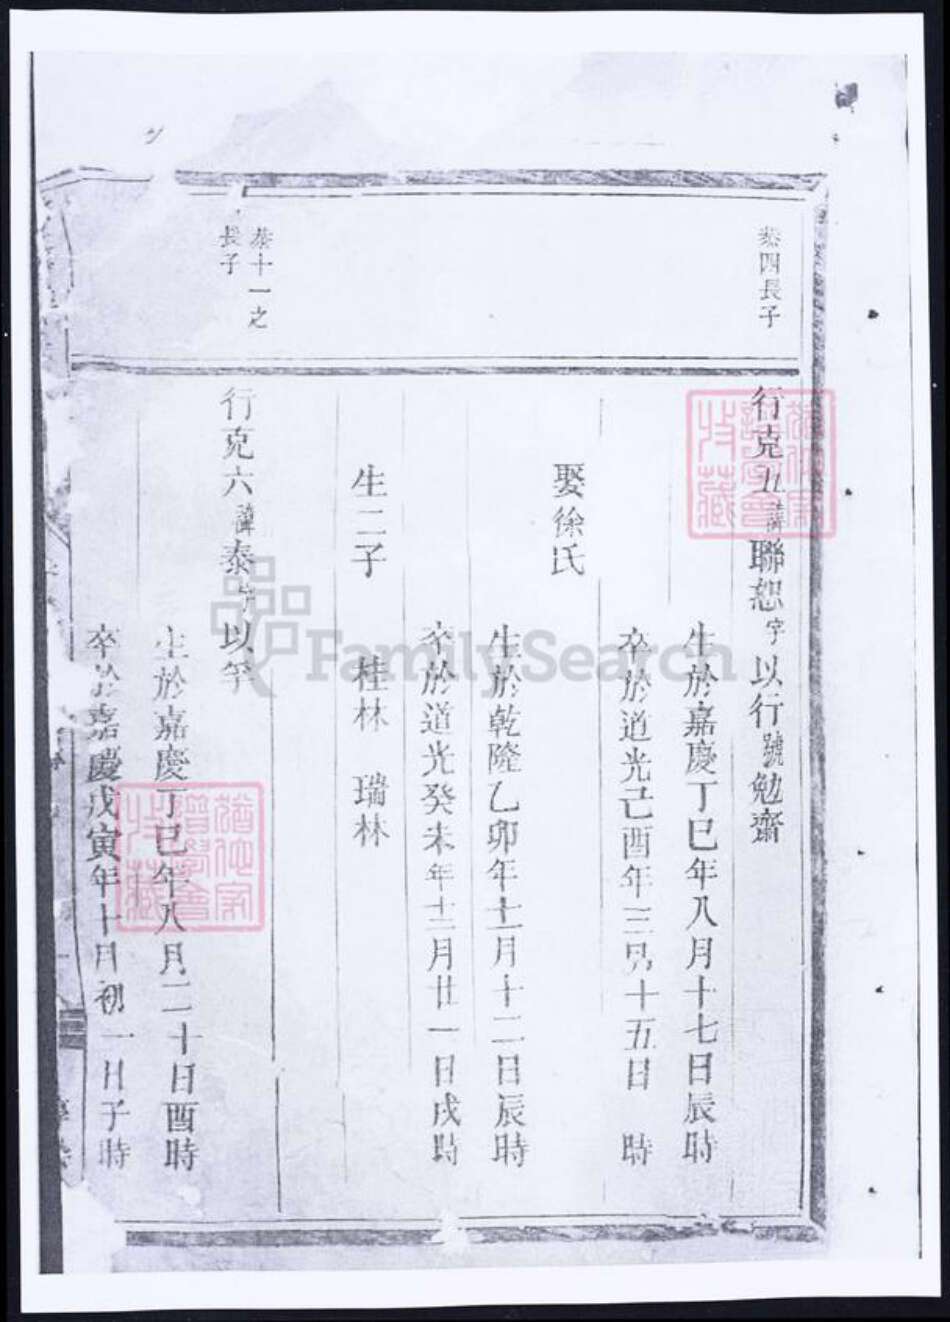 泰四長子
行克五諱聯恕字以行號勉齋
生於嘉慶丁巳年八月十七日辰時
卒於道光己酉年三月十五日 時
娶徐氏
生於乾隆乙卯年十二月十二日辰時
卒於道光癸未年十二月廿一日戌時
生二子 桂林 瑞林
泰十一之
長子
行克六諱泰字以竿
生於嘉慶丁巳年八月二十日酉時
卒於嘉慶戊寅年十月初一日子時
FamilySearch